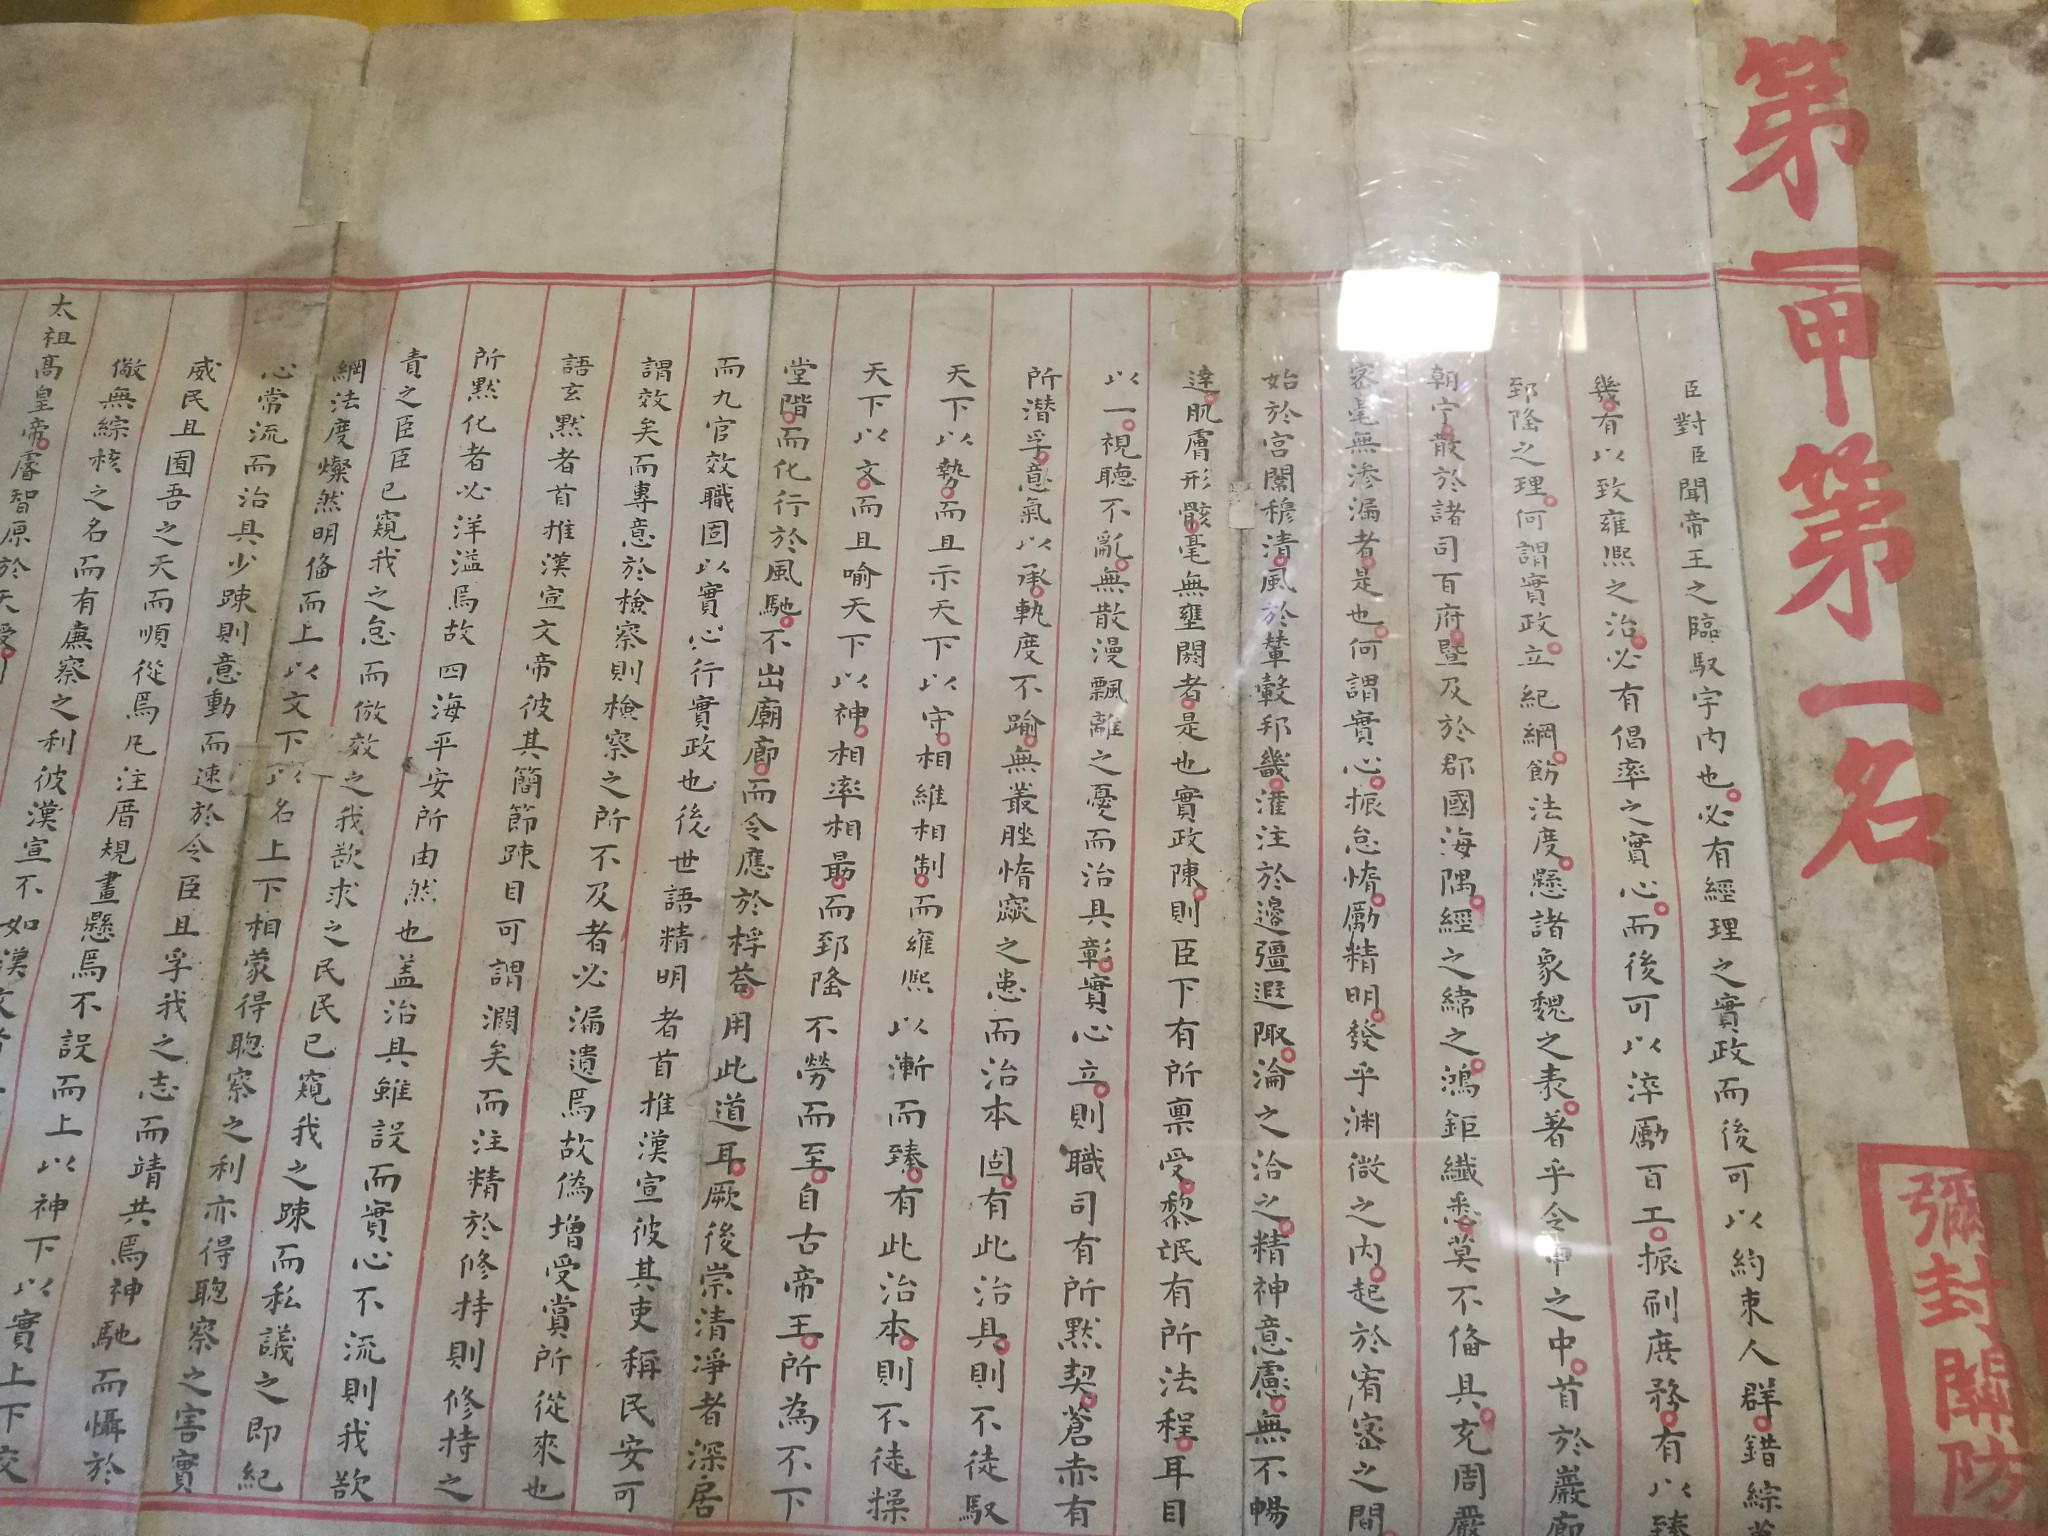 第一甲第一名
彌封關防
臣對臣聞帝王之臨馭宇內也必有經理之實政而後可以約束人群錯綜
幾有以致雍熙之治必有倡率之實心而後可以淬勵百工振刷庶務有以臻
郅隆之理何謂實政立紀綱飭法度懸諸象魏之表著乎令甲之中首於巖廊
朝宁散於諸司百府暨及於郡國海隅經之緯之鴻鉅纖悉莫不俻具充周嚴
密毫無滲漏者是也何謂實心振怠惰勵精明發乎淵微之內起於宥密之間
始於宮闈穆清風於輦轂邦畿灌注於邊疆遐陬淪之洽之精神意慮無不暢
達肌膚形骸毫無壅閼者是也實政陳則臣下有所禀受黎氓有所法程耳目
以一視聽不亂無散漫飄離之憂而治具彰實心立則職司有所默契蒼赤有
所潛孚意氣以承軌度不踰無叢脞惰窳之患而治本固有此治具則不徒馭
天下以勢而且示天下以守相維相制而雍熙以漸而臻有此治本則不徒操
天下以文而且喻天下以神相率相勗而郅隆不勞而至自古帝王所為不下
堂階而化行於風馳不出廟廊而令應於桴荅用此道耳厥後崇清淨者深居
而九官效職固以實心行實政也後世語精明者首推漢宣彼其吏稱民安可
謂效矣而專意於檢察則檢察之所不及者必漏遺焉故偽增受賞所從來也
語玄默者首推漢宣文帝彼其簡節踈目可謂濶矣而注精於修持則修持之
所默化者必洋溢焉故四海平安所由然也盖治具雖設而實心不流則我欲
責之臣臣已窺我之怠而倣效之我欲求之民民已窺我之踈而私議之即紀
綱法度燦然明俻而上以文下以名上下相蒙得聰察之利亦得聰察之害實
心常流而治具少踈則意動而速於令臣且孚我之志而靖共焉神馳而懾於
威民且囿吾之天而順從焉凡注厝規畫懸焉不設而上以神下以實上下交
儆無綜核之名而有廉察之利彼漢宣不如漢文者
太祖高皇帝睿智原於天授